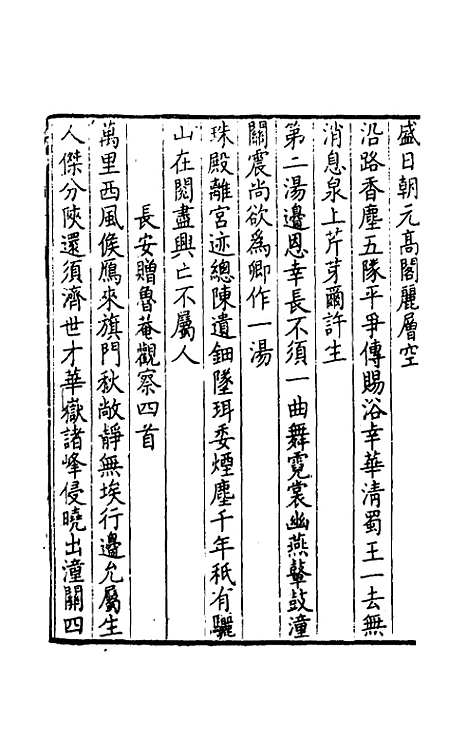 盛日朝元高閣麗層空
沿路香塵五隊平爭傳賜浴幸華清蜀王一去無
消息泉上芹芽爾許生
第二湯邊恩幸長不須一曲舞霓裳幽燕鼙鼓潼
關震尚欲爲卿作一湯
珠殿離宮迹總陳遺鈿墜珥委煙塵千年秖有驪
山在閱盡興亡不屬人
長安贈魯菴觀察四首
萬里西風候鴈來旗門秋敞靜無埃行邊允屬生
人傑分陝還須濟世才華嶽諸峰侵曉出潼關四